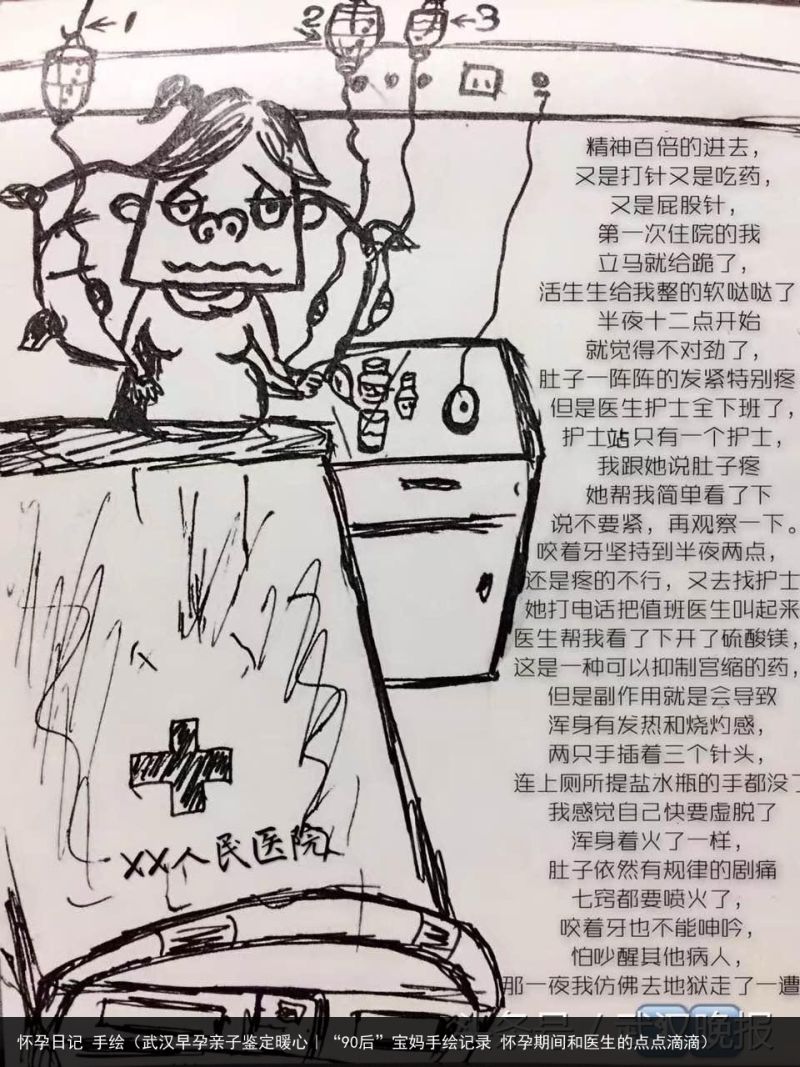 1
2
3
精神百倍的进去，
又是打针又是吃药，
又是屁股针，
第一次住院的我
立马就给跪了，
活生生给我整的软哒哒了
半夜十二点开始
就觉得不对劲了，
肚子一阵阵的发紧特别疼
但是医生护士全下班了，
护士站只有一个护士，
我跟她说肚子疼
她帮我简单看了下
说不要紧，再观察一下。
咬着牙坚持到半夜两点，
还是疼的不行，又去找护士
她打电话把值班医生叫起来
医生帮我看了下开了硫酸镁，
这是一种可以抑制宫缩的药，
但是副作用就是会导致
浑身有发热和烧灼感，
两只手插着三个针头，
连上厕所提盐水瓶的手都没了
我感觉自己快要虚脱了
浑身着火了一样，
肚子依然有规律的剧痛
七窍都要喷火了，
咬着牙也不能呻吟，
怕吵醒其他病人，
那一夜我仿佛去地狱走了一遭
XX人民医院
武汉晚报
怀孕日记 手绘（武汉早孕亲子鉴定暖心｜“90后”宝妈手绘记录 怀孕期间和医生的点点滴滴）